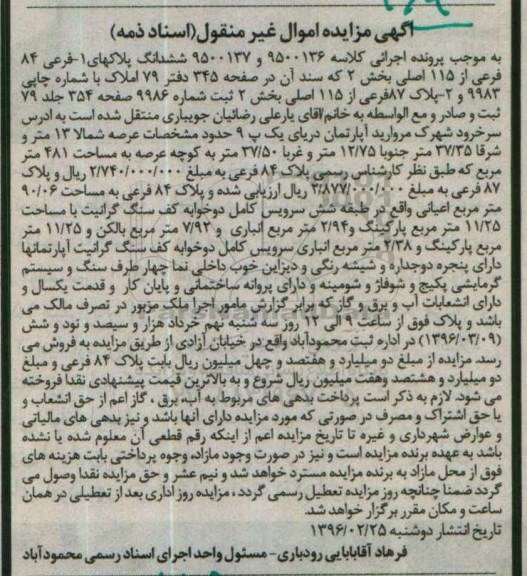 آگهی مزایده اموال غیر منقول(اسناد ذمه)
به موجب پرونده اجرائی کلاسه ۹۵۰۰۱۳۶ و ۹۵۰۰۱۳۷ ششدانگ پلاکهای۱-فرعی ۸۴
فرعی از ۱۱۵ اصلی بخش ۲ که سند آن در صفحه ۳۴۵ دفتر ۷۹ املاک با شماره چاپی
۹۹۸۳ و ۲-پلاک ۸۷فرعی از ۱۱۵ اصلی بخش ۲ ثبت شماره ۹۹۸۶ صفحه ۳۵۴ جلد ۷۹
ثبت و صادر و مع الواسطه به خانم/آقای یارعلی رضائیان جویباری منتقل شده است به ادرس
سرخرود شهرک مروارید آپارتمان دریای یک پ ۹ حدود مشخصات عرصه شمالا ۱۳ متر و
شرقا ۳۷/۳۵ متر جنوبا ۱۲/۷۵ متر و غربا ۳۷/۵۰ متر به کوچه عرصه به مساحت ۴۸۱ متر
مربع که طبق نظر کارشناس رسمی پلاک ۸۴ فرعی به مبلغ ۲/۷۴۰/۰۰۰/۰۰۰ ریال و پلاک
۸۷ فرعی به مبلغ ۳/۸۷۷/۰۰۰/۰۰۰ ریال ارزیابی شده و پلاک ۸۴ فرعی به مساحت ۹۰/۰۶
متر مربع اعیانی واقع در طبقه شش سرویس کامل دوخوابه کف سنگ گرانیت با مساحت
۱۱/۲۵ متر مربع پارکینگ و۲/۹۴ متر مربع انباری و ۷/۹۲ متر مربع بالکن و ۱۱/۲۵ متر
مربع پارکینگ و ۲/۳۸ متر مربع انباری سرویس کامل دوخوابه کف سنگ گرانیت آپارتمانها
دارای پنجره دوجداره و شیشه رنگی و دیزاین خوب داخلی نما چهار طرف سنگ و سیستم
گرمایشی پکیج و شوفاژ و شومینه و دارای پروانه ساختمانی و پایان کار و قدمت یکسال و
دارای انشعابات آب و برق و گاز که برابر گزارش مامور اجرا ملک مزبور در تصرف مالک می
باشد و پلاک فوق از ساعت ۹ الی ۱۲ روز سه شنبه نهم خرداد هزار و سیصد و نود و شش
(۱۳۹۶/۰۳/۰۹) در اداره ثبت محمودآباد واقع در خیابان آزادی از طریق مزایده به فروش می
رسد. مزایده از مبلغ دو میلیارد و هفتصد و چهل میلیون ریال بابت پلاک ۸۴ فرعی و مبلغ
دو میلیارد و هشتصد وهفت میلیون ریال شروع و به بالاترین قیمت پیشنهادی نقدا فروخته
می شود. لازم به ذکر است پرداخت بدهی های مربوط به آب، برق ، گاز اعم از حق انشعاب و
یا حق اشتراک و مصرف در صورتی که مورد مزایده دارای آنها باشد و نیز بدهی های مالیاتی
و عوارض شهرداری و غیره تا تاریخ مزایده اعم از اینکه رقم قطعی آن معلوم شده یا نشده
باشد به عهده برنده مزایده است و نیز در صورت وجود مازاد، وجوه پرداختی بابت هزینه های
فوق از محل مازاد به برنده مزایده مسترد خواهد شد و نیم عشر و حق مزایده نقدا وصول می
گردد ضمنا چنانچه روز مزایده تعطیل رسمی گردد ، مزایده روز اداری بعد از تعطیلی در همان
ساعت و مکان مقرر برگزار خواهد شد.
تاریخ انتشار دوشنبه ۱۳۹۶/۰۲/۲۵
فرهاد آقابابایی رودباری- مسئول واحد اجرای اسناد رسمی محمودآباد